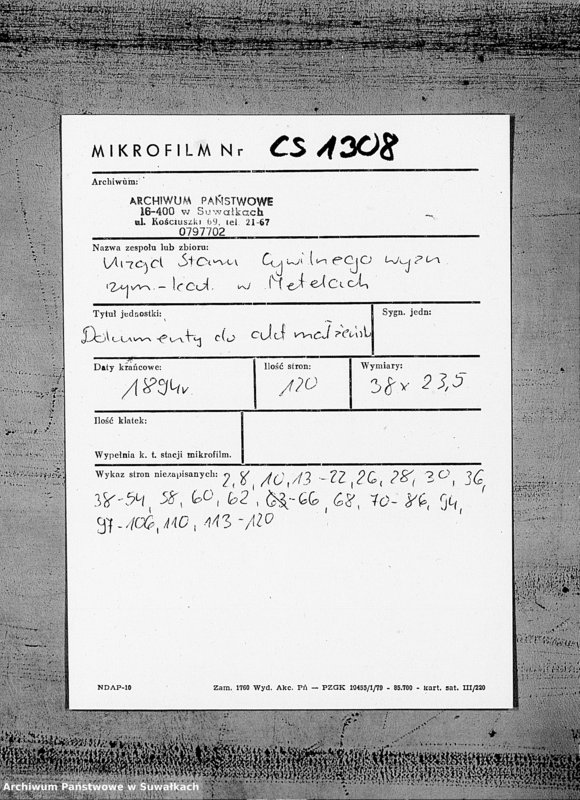 MIKROFILM Nr CS 1308
Archiwum:
ARCHIWUM PAŃSTWOWE
16-400 w Suwałkach
ul. Kościuszki 69, tel. 21-67
0797702
Nazwa zespołu lub zbioru:
Urząd Stanu Cywilnego wyzn.
rzym.-kat. w Metelach
Tytuł jednostki:
Sygn. jedn:
Dokumenty do akt małżeńsk
Daty krańcowe:
1894r.
Ilość stron:
120
Wymiary:
38 x 23,5
Ilość klatek:
Wypełnia k. t. stacji mikrofilm.
Wykaz stron niezapisanych: 2, 8, 10, 13-22, 26, 28, 30, 36,
38-54, 58, 60, 62, 63-66, 68, 70-86, 94,
97-106, 110, 113-120
NDAP-10
Zam. 1760 Wyd. Akc. Pń — PZGK 19455/I/79 - 85.700 - kart. sat. III/220
Archiwum Państwowe w Suwałkach